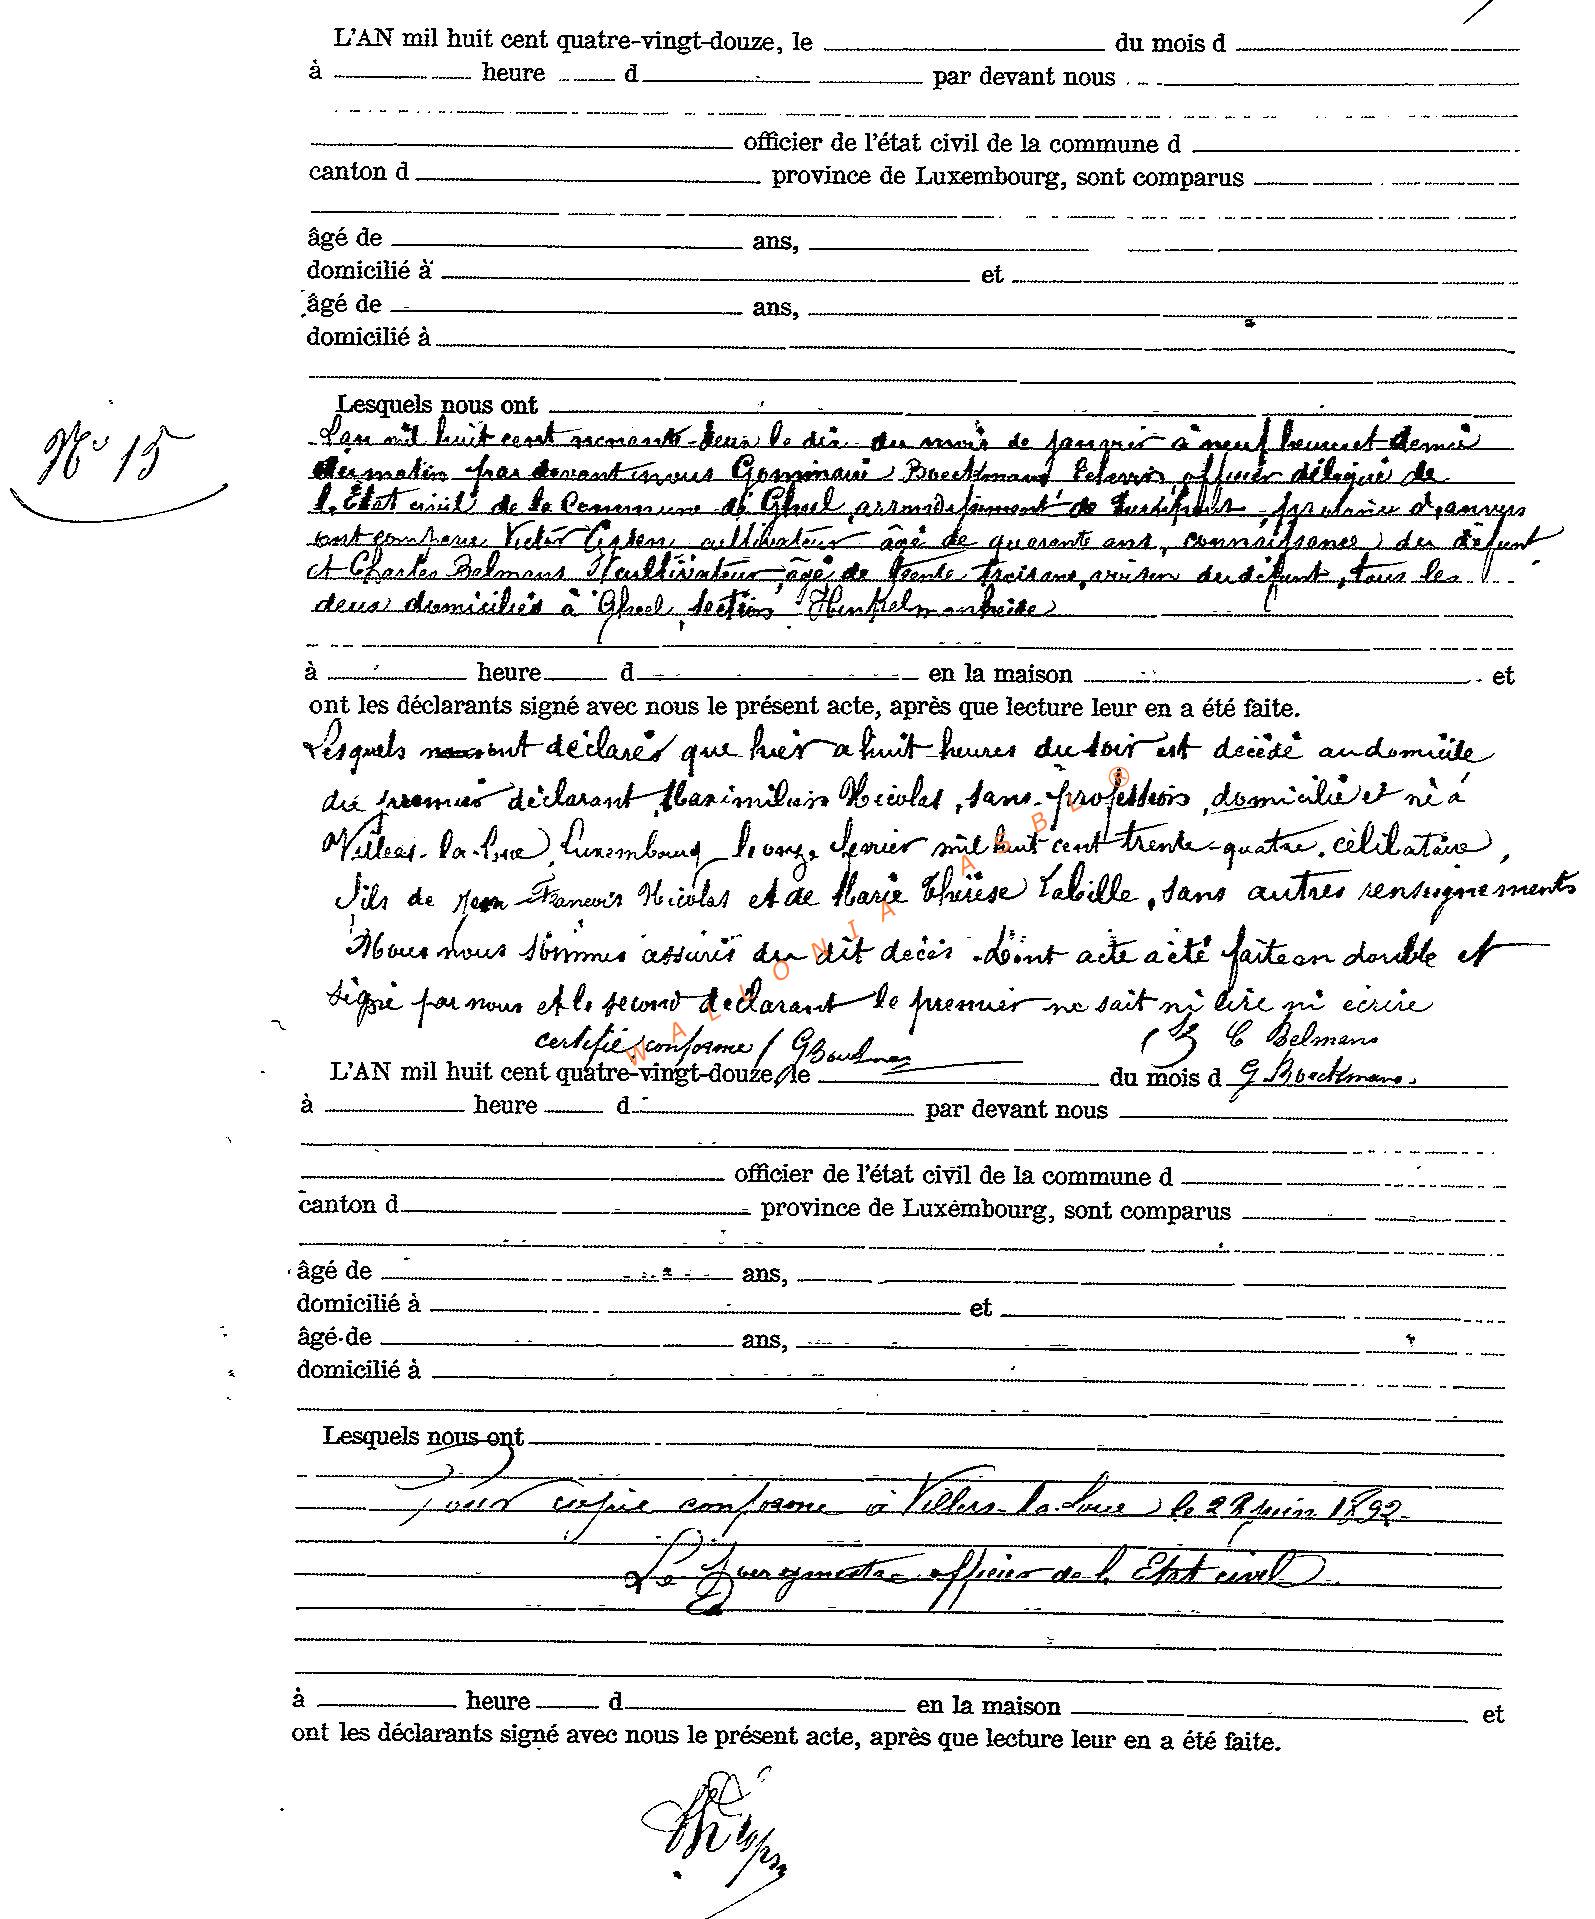 L'AN mil huit cent quatre-vingt-douze, le du mois d
à heure d par devant nous
officier de l'état civil de la commune d
canton d province de Luxembourg, sont comparus
âgé de ans,
domicilié à et
âgé de ans,
domicilié à
Lesquels nous ont
N° 15
L'an mil huit cent nonante-deux le dix du mois de janvier à neuf heures et demie
du matin par devant nous Gommaire Boeckmans Echevin, officier délégué de
l'Etat civil de la Commune de Gheel, arrondissement de Turnhout, province d'anvers
ont comparu Victor cultivateur âgé de quarante ans, connaissance du défunt
et Charles Belmans cultivateur, âgé de trente trois ans, voisin du défunt, tous les
deux domiciliés à Gheel, section
à heure d en la maison et
ont les déclarants signé avec nous le présent acte, après que lecture leur en a été faite.
Lesquels ont déclarés que hier a huit heures du soir est décédé au domicile
du premier déclarant, Maximilien Nicolas, sans profession, domicilié et né à
Villers-la-Loue, Luxembourg le onze fevrier mil huit cent trente-quatre, célibataire,
fils de Jean François Nicolas et de Marie Thérèse Labille, sans autres renseignements
Nous nous sommes assurés du dit décès. Dont acte a été faite en double et
signé par nous et le second déclarant le premier ne sait ni lire ni écrire
certifié conforme / G Boeckmans C Belmans
G. Boeckmans.
WALLONIA ASBL ®
L'AN mil huit cent quatre-vingt-douze, le du mois d
à heure d par devant nous
officier de l'état civil de la commune d
canton d province de Luxembourg, sont comparus
âgé de ans,
domicilié à et
âgé de ans,
domicilié à
Lesquels nous ont
Pour copie conforme à Villers-la-Loue le juin 1892.
Le Bourgmestre officier de l'Etat civil
à heure d en la maison et
ont les déclarants signé avec nous le présent acte, après que lecture leur en a été faite.